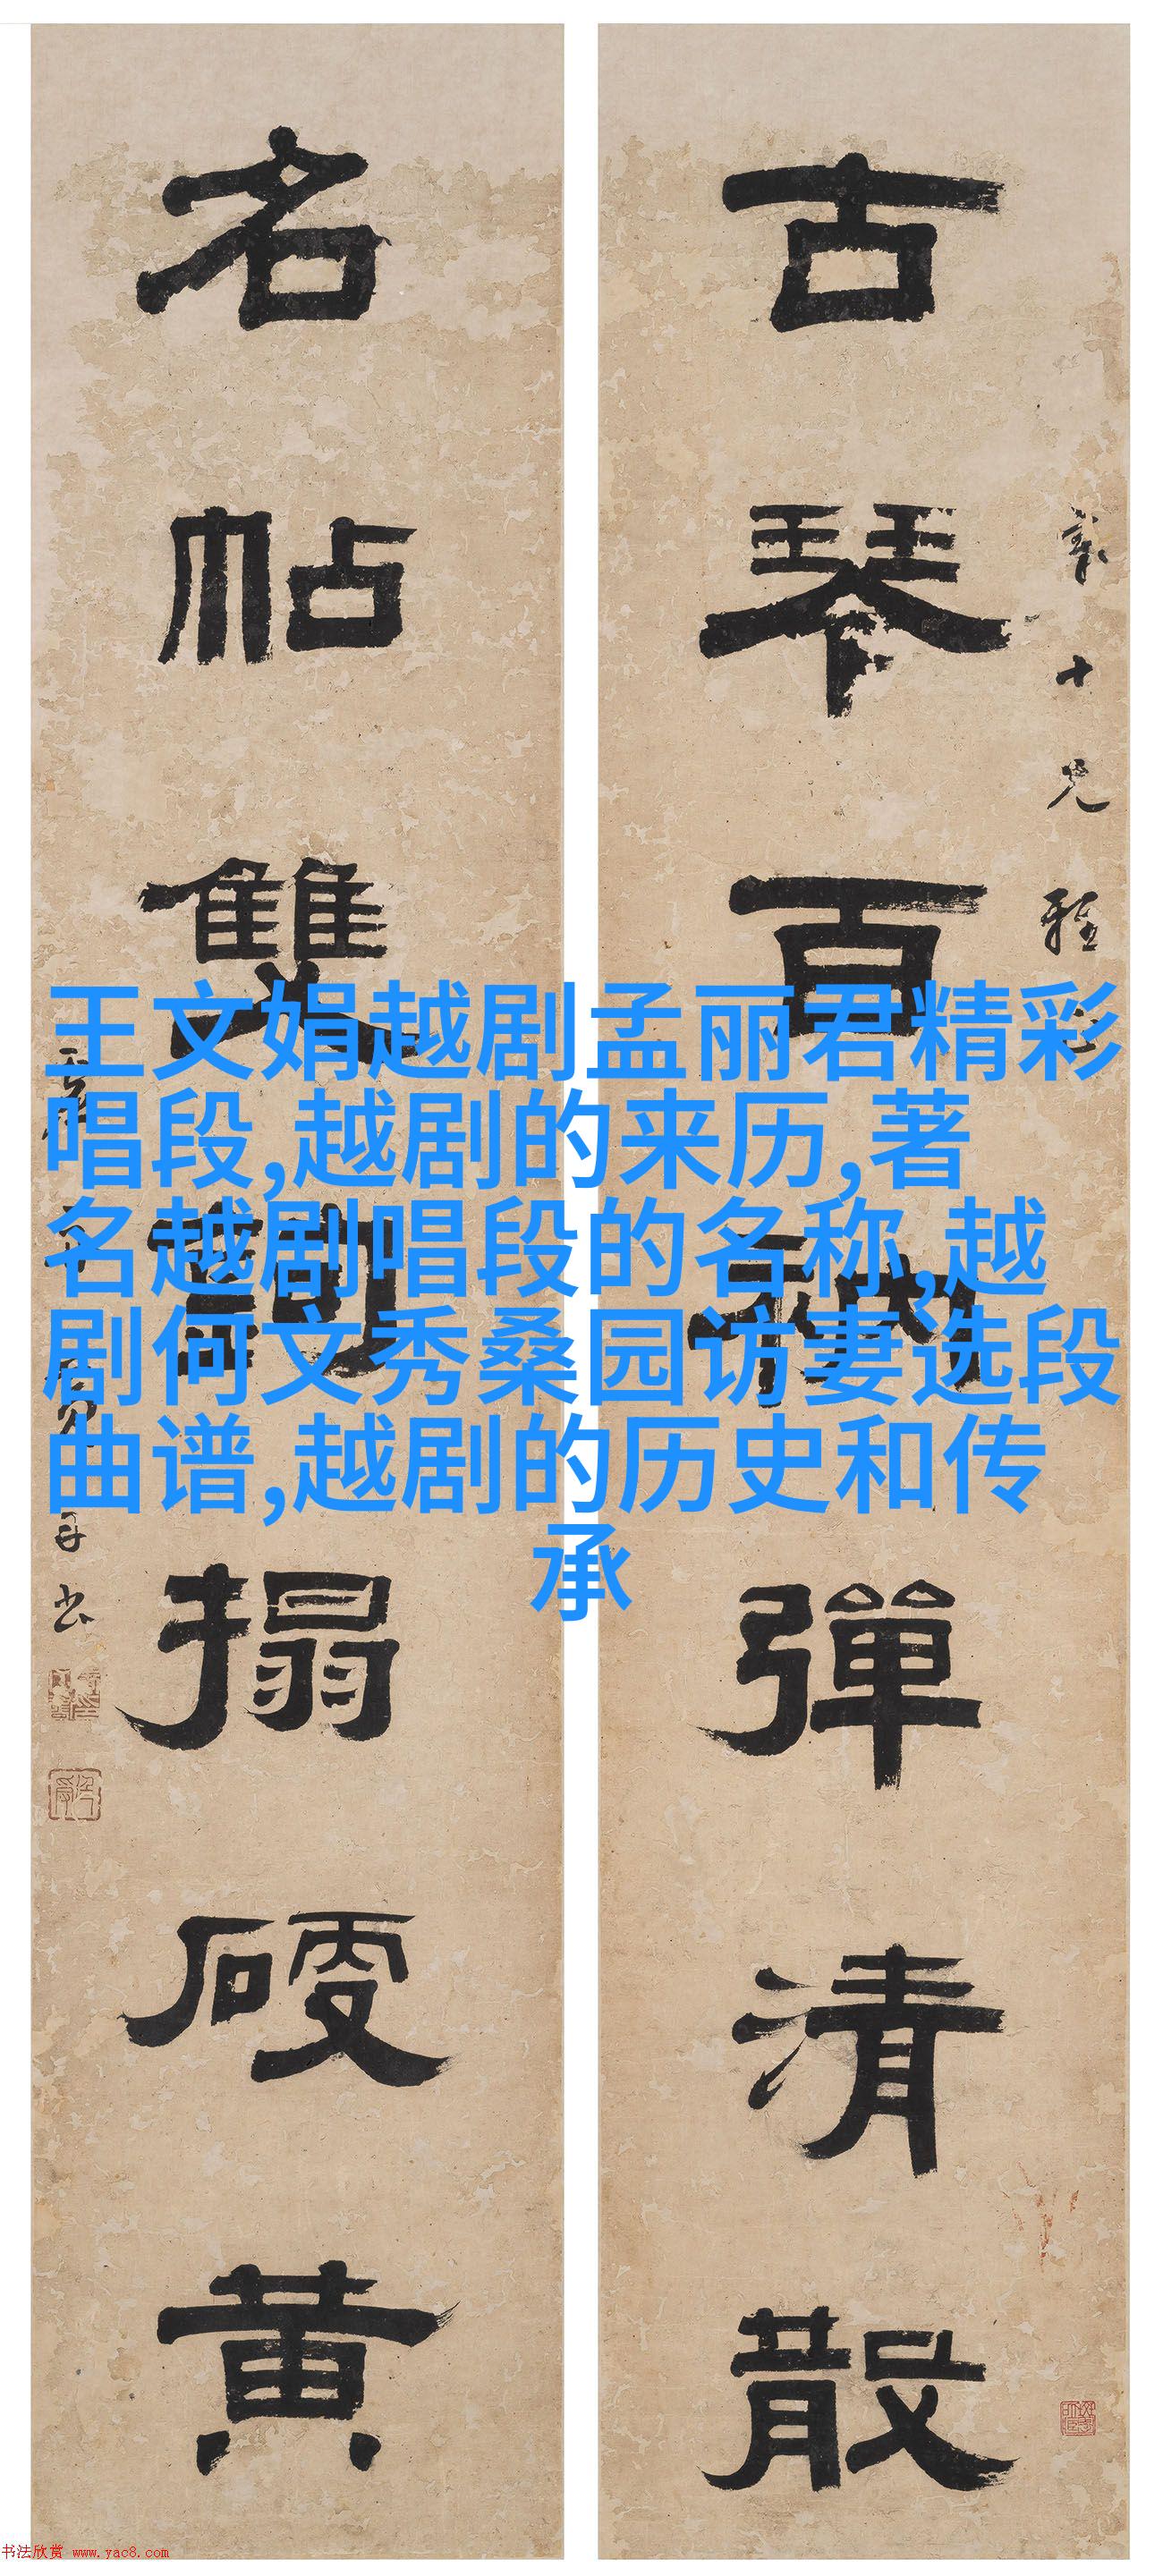 古琴百衲彈清散
名帖雙鉤搨硬黄
十兄雅
書
王文娟越剧孟丽君精彩
唱段,越剧的来历,著
名越剧唱段的名称,越
剧何文秀桑园访妻选段
曲谱,越剧的历史和传
承
书法欣赏 www.yac8.com